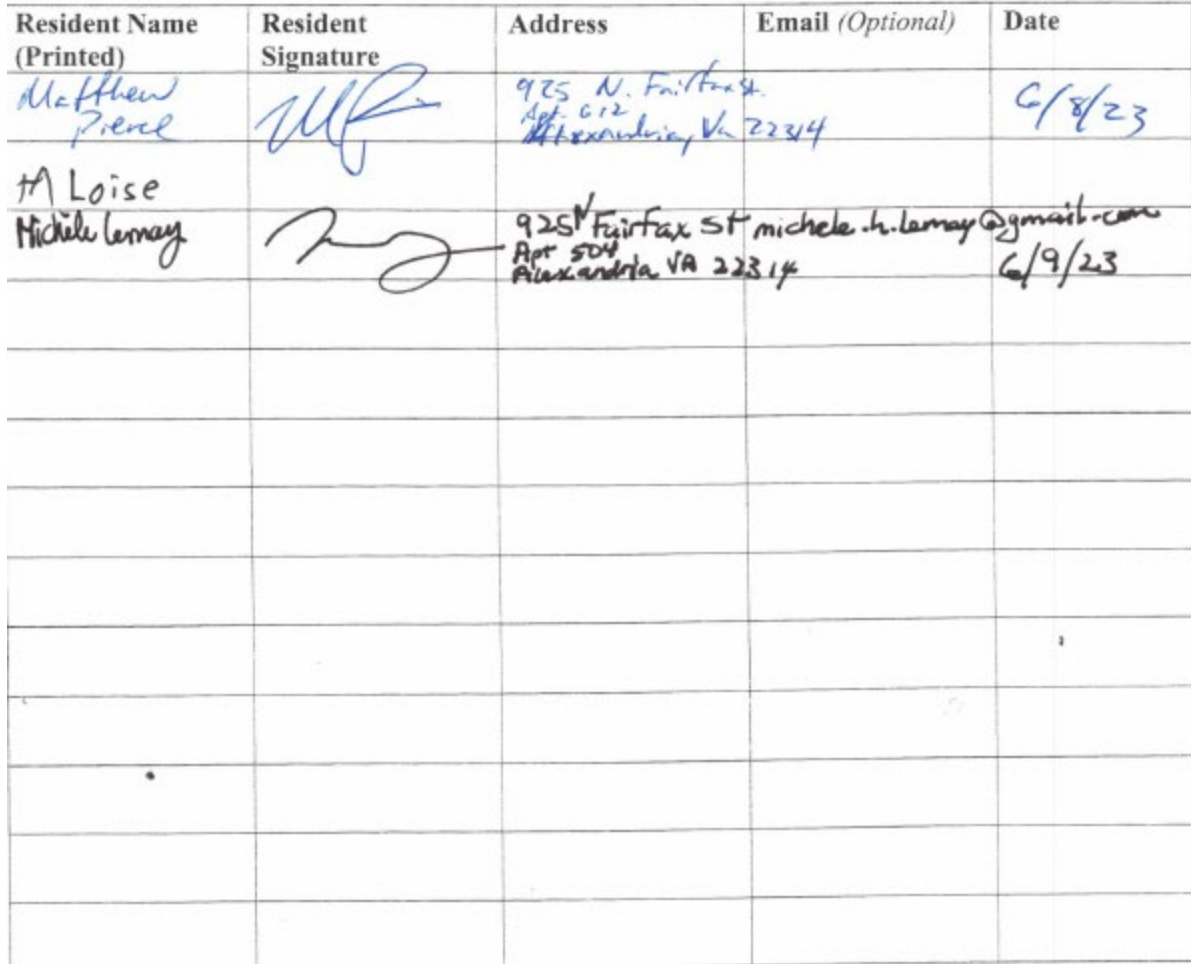 Resident Name (Printed) Resident Signature Address Email (Optional) Date
Matthew Pierce 925 N. Fairfax St. Apt. 612 Alexandria, Va 22314 6/8/23
Loise
Michele Lemay 925 N Fairfax St Apt 504 Alexandria VA 22314 michele.h.lemay@gmail.com 6/9/23